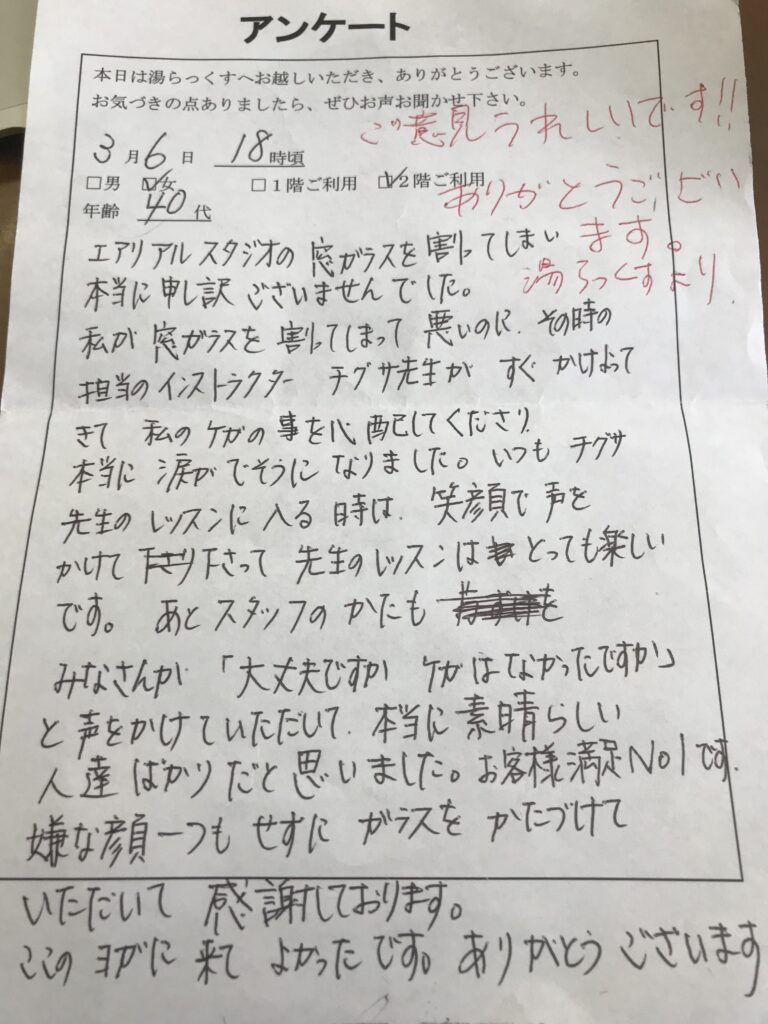 アンケート
本日は湯らっくすへお越しいただき、ありがとうございます。
お気づきの点ありましたら、ぜひお声お聞かせ下さい。
ご意見うれしいです!!
3月6日 18時頃
□男 ☑女 □1階ご利用 ☑2階ご利用
ありがとうござい
年齢 40代
ます。
湯らっくすより
エアリアルスタジオの窓ガラスを割ってしまい
本当に申し訳ございませんでした。
私が窓ガラスを割ってしまって悪いのに、その時の
担当のインストラクター チグサ先生が すぐかけよって
きて 私のケガの事を心配してくださり
本当に涙がでそうになりました。いつも チグサ
先生のレッスンに入る時は、笑顔で声を
かけて 下さって 先生のレッスンは とっても楽しい
です。 あとスタッフのかたも を
みなさんが 「大丈夫ですか ケガはなかったですか」
と声をかけていただいて、本当に素晴らしい
人達ばかりだと思いました。お客様満足No1です。
嫌な顔一つもせずに ガラスを かたづけて
いただいて 感謝しております。
ここのヨガに来て よかったです。ありがとうございます